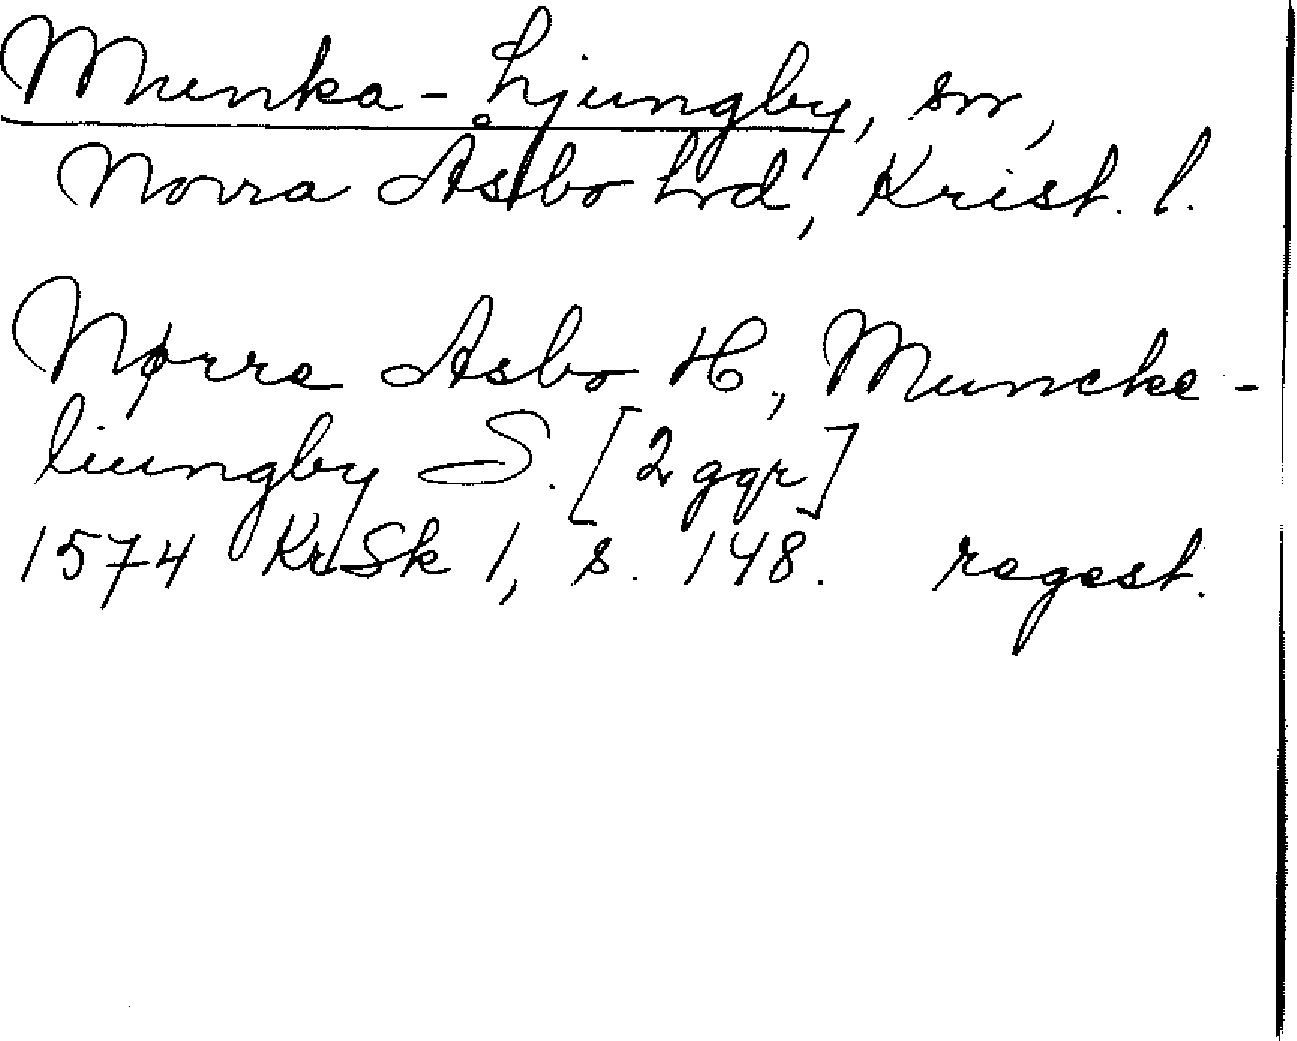 Munka-Ljungby, sn,
Norra Åsbo hd, Krist. l.
Nørre Asbo H., Muncke-
liungby S. [2 ggr]
1574 KrSk 1, s. 148. regest.